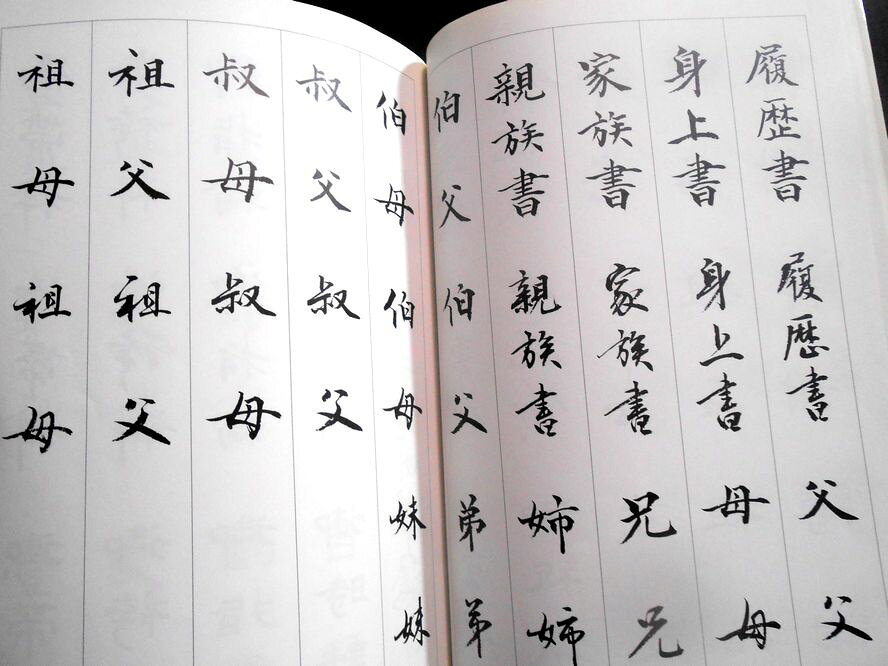 履歴書 履歴書 父 父
身上書 身上書 母 母
家族書 家族書 兄 兄
親族書 親族書 姉 姉
伯父 伯父 弟 弟
伯母 伯母 妹 妹
叔父 叔父
叔母 叔母
祖父 祖父
祖母 祖母